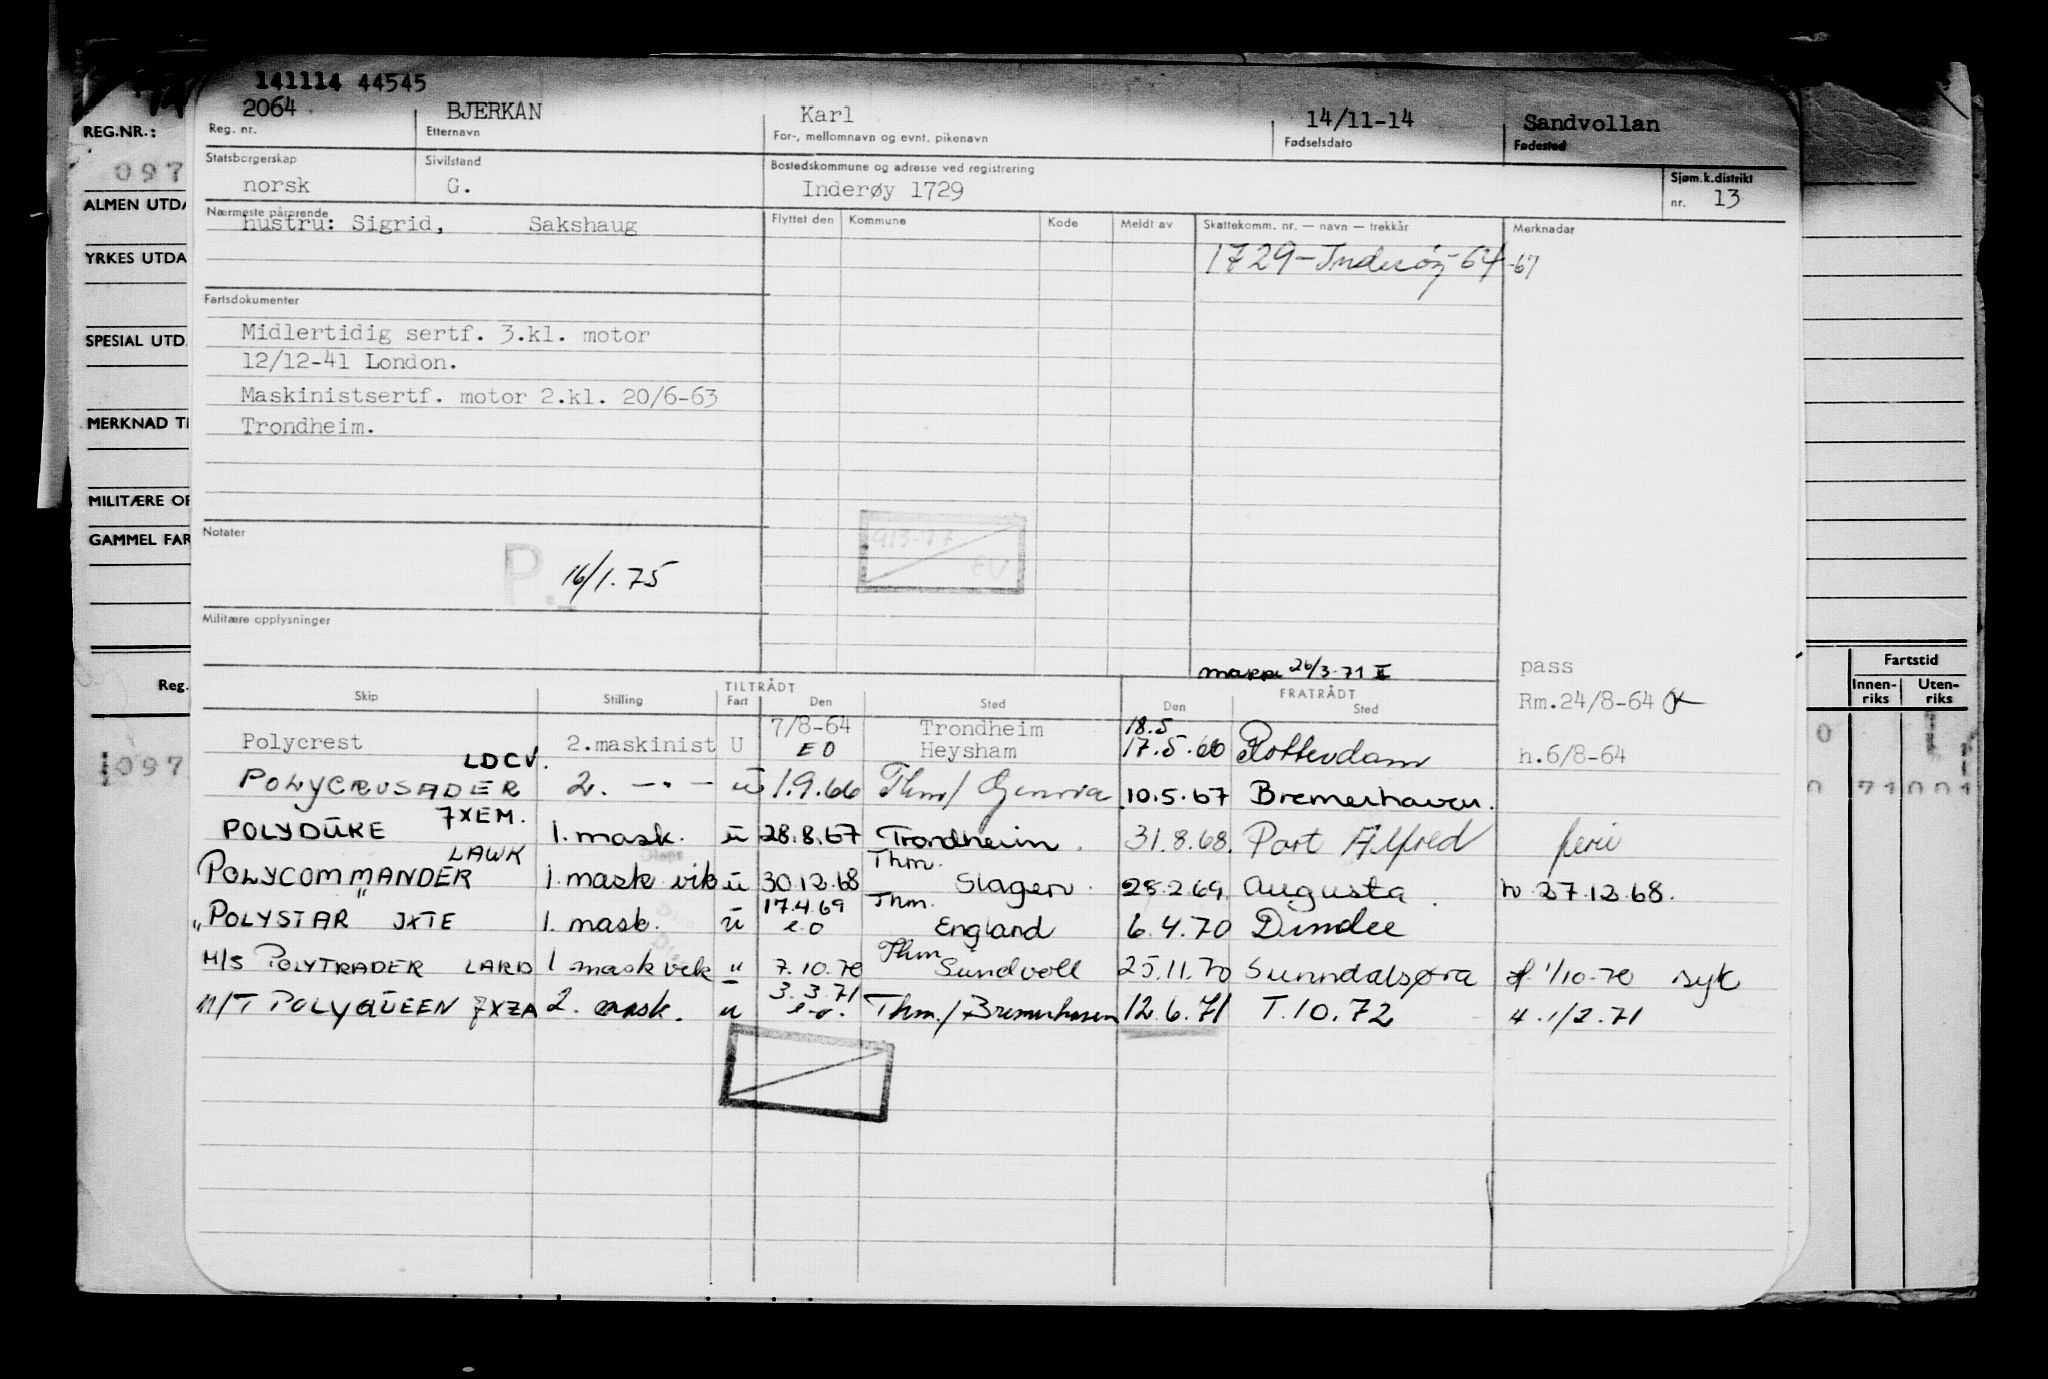 141114 44545
2064 BJERKAN Karl 14/11-14 Sandvollan
Reg. nr. Etternavn For-, mellomnavn og evnt. pikenavn Fødselsdato Fødested
REG.NR.:
097
Statsborgerskap Sivilstand Bostedskommune og adresse ved registrering Sjøm.k.distrikt
norsk G. Inderøy 1729 nr. 13
ALMEN UTDA
Nærmeste pårørende Flyttet den Kommune Kode Meldt av Skattekomm. nr. — navn — trekkår Merknader
hustru: Sigrid, Sakshaug
1729-Inderøy-64-67
YRKES UTDA
Fartsdokumenter
Midlertidig sertf. 3.kl. motor
SPESIAL UTD.
12/12-41 London.
Maskinistsertf. motor 2.kl. 20/6-63
MERKNAD TI
Trondheim.
MILITÆRE OP
GAMMEL FAR
Notater
P. 16/1.75
EV
Militære opplysninger
mappe 26/3-71 pass
Reg. Skip Stilling TILTRÅDT Fart Den Sted FRATRÅDT Den Sted Rm.24/8-64
Fartstid
Innen-riks Uten-riks
7/8-64 Trondheim 18.5
Polycrest 2.maskinist U EO Heysham 17.5.66 Rotterdam h.6/8-64
LDCV.
POLYCRUSADER 2. —"— ū 1.9.66 Thm/ 10.5.67 Bremerhaven.
7XEM.
POLYDUKE 1. mask. ū 28.8.67 Trondheim. 31.8.68. Port Alfred ferie
LAWK Thm.
POLYCOMMANDER 1. mask vik ū 30.12.68 Slagen. 25.2.69. Augusta. h 27.12.68.
17.4.69 Thm.
"POLYSTAR" JXTE 1. mask. ū e.o England 6.4.70 Dundee
Thm
M/S POLYTRADER LARD 1 mask vik " 7.10.70 Sundvoll 25.11.70 Sunndalsøra 1/10-70 syk
3.3.71
M/T POLYQUEEN 7XZA 2. mask. u e.o. Thm./Bremerhaven 12.6.71 T.10.72 1/2.71
1097